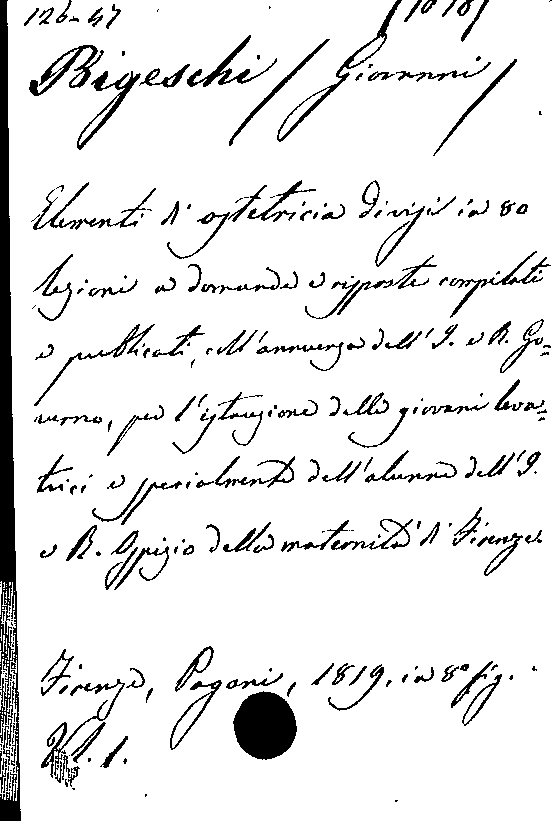 126-47
Bigeschi / Giovanni /
Elementi d'ostetricia divisi in 80
lezioni a domande e risposte compilati
e publicati, coll'annuenza dell'I. e R. Go=
verno, per l'istruzione delle giovani leva=
trici e specialmente dell'alunne dell'I.
e R. Ospizio della maternità di Firenze.
Firenze, Pagani, 1819, in 8° fig.
Vol. 1.